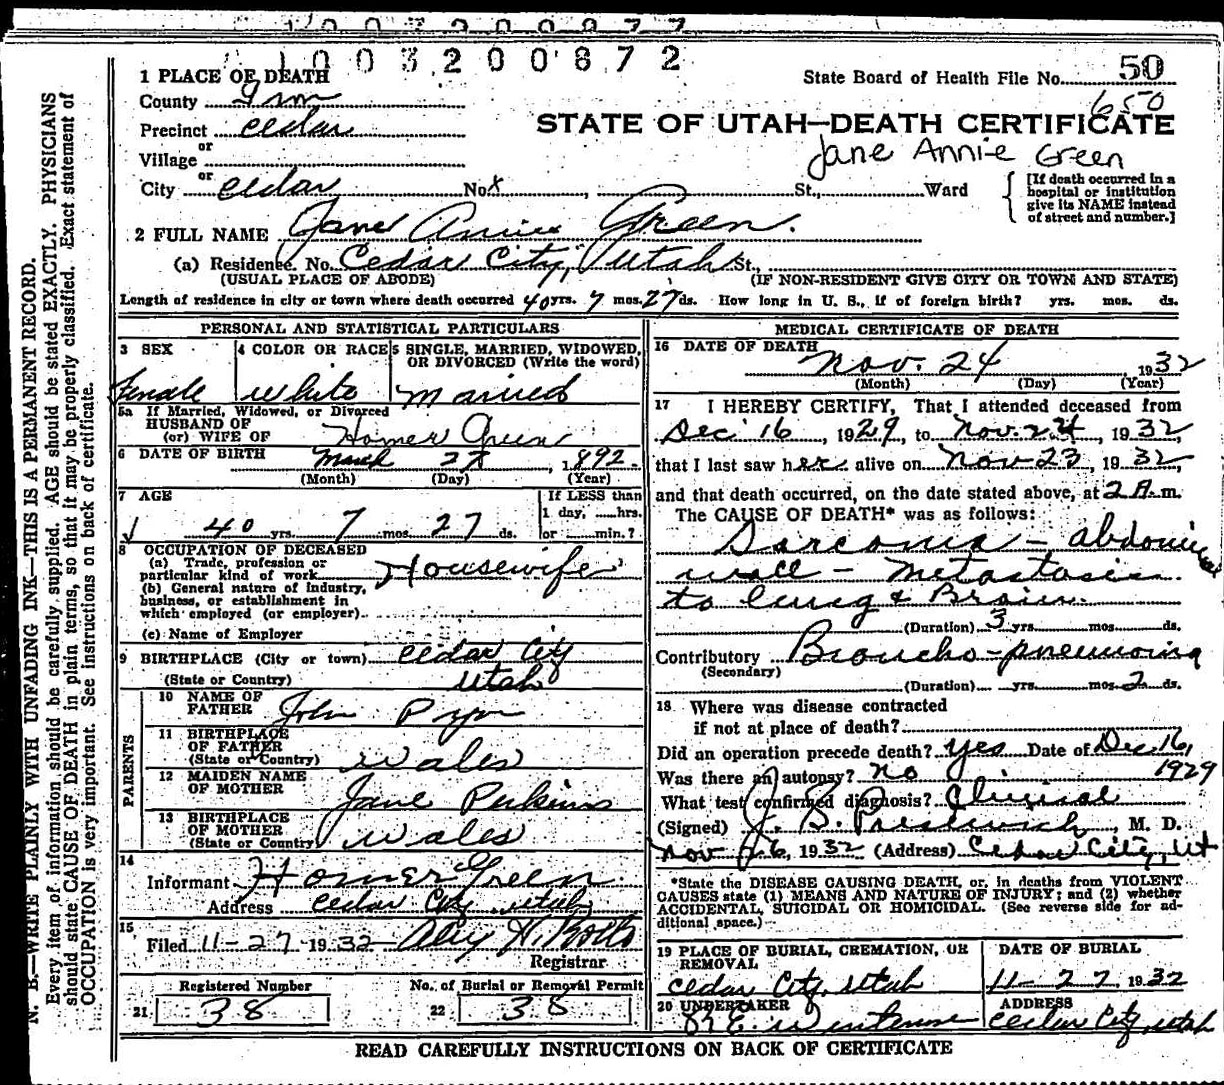 1003200877
1003200872
1 PLACE OF DEATH
State Board of Health File No. 50
County Irn
650
Precinct Cedar
STATE OF UTAH—DEATH CERTIFICATE
or
Jane Annie Green
Village
or
City Cedar No. x St., Ward
[If death occurred in a
hospital or institution
give its NAME instead
of street and number.]
2 FULL NAME Jane Annie Green.
(a) Residence. No. Cedar City, Utah St.,
(USUAL PLACE OF ABODE) (IF NON-RESIDENT GIVE CITY OR TOWN AND STATE)
Length of residence in city or town where death occurred 40 yrs. 7 mos. 27 ds. How long in U. S., if of foreign birth? yrs. mos. ds.
PERSONAL AND STATISTICAL PARTICULARS
3 SEX
female
4 COLOR OR RACE
white
5 SINGLE, MARRIED, WIDOWED,
OR DIVORCED (Write the word)
married
5a If Married, Widowed, or Divorced
HUSBAND OF
(or) WIFE OF Homer Green
6 DATE OF BIRTH March 28, 1892.
(Month) (Day) (Year)
7 AGE
40 yrs. 7 mos. 27 ds.
If LESS than
1 day, hrs.
or min.?
8 OCCUPATION OF DECEASED
(a) Trade, profession or
particular kind of work Housewife
(b) General nature of industry,
business, or establishment in
which employed (or employer)
(c) Name of Employer
9 BIRTHPLACE (City or town) Cedar City
(State or Country) Utah
PARENTS
10 NAME OF
FATHER John Pryor
11 BIRTHPLACE
OF FATHER
(State or Country) Wales
12 MAIDEN NAME
OF MOTHER Jane Perkins
13 BIRTHPLACE
OF MOTHER
(State or Country) Wales
14
Informant Homer Green.
Address Cedar City Utah,
15
Filed 11-27 1932
Registrar
Registered Number
21 38
No. of Burial or Removal Permit
22 38
MEDICAL CERTIFICATE OF DEATH
16 DATE OF DEATH
Nov. 24, 1932
(Month) (Day) (Year)
17 I HEREBY CERTIFY, That I attended deceased from
Dec 16, 1929, to Nov. 24, 1932,
that I last saw her alive on Nov 23, 1932,
and that death occurred, on the date stated above, at 2 A. m.
The CAUSE OF DEATH* was as follows:
Sarcoma - abdominal
wall - metastasis
to lung & Brain.
(Duration) 3 yrs. mos. ds.
Contributory Broncho-pneumonia
(Secondary)
(Duration) yrs. mos. 2 ds.
18 Where was disease contracted
if not at place of death?
Did an operation precede death? Yes Date of Dec 16,
1929
Was there an autopsy? no
What test confirmed diagnosis? Clinical
(Signed) J. B. Prestwich, M. D.
Nov 26, 1932 (Address) Cedar City, Ut
*State the DISEASE CAUSING DEATH, or, in deaths from VIOLENT
CAUSES state (1) MEANS AND NATURE OF INJURY; and (2) whether
ACCIDENTAL, SUICIDAL OR HOMICIDAL. (See reverse side for ad-
ditional space.)
19 PLACE OF BURIAL, CREMATION, OR
REMOVAL
Cedar City, Utah
DATE OF BURIAL
11-27 1932
20 UNDERTAKER
ADDRESS
Cedar City, Utah
READ CAREFULLY INSTRUCTIONS ON BACK OF CERTIFICATE
N. B.—WRITE PLAINLY WITH UNFADING INK—THIS IS A PERMANENT RECORD.
Every item of information should be carefully supplied. AGE should be stated EXACTLY. PHYSICIANS
should state CAUSE OF DEATH in plain terms, so that it may be properly classified. Exact statement of
OCCUPATION is very important. See instructions on back of certificate.